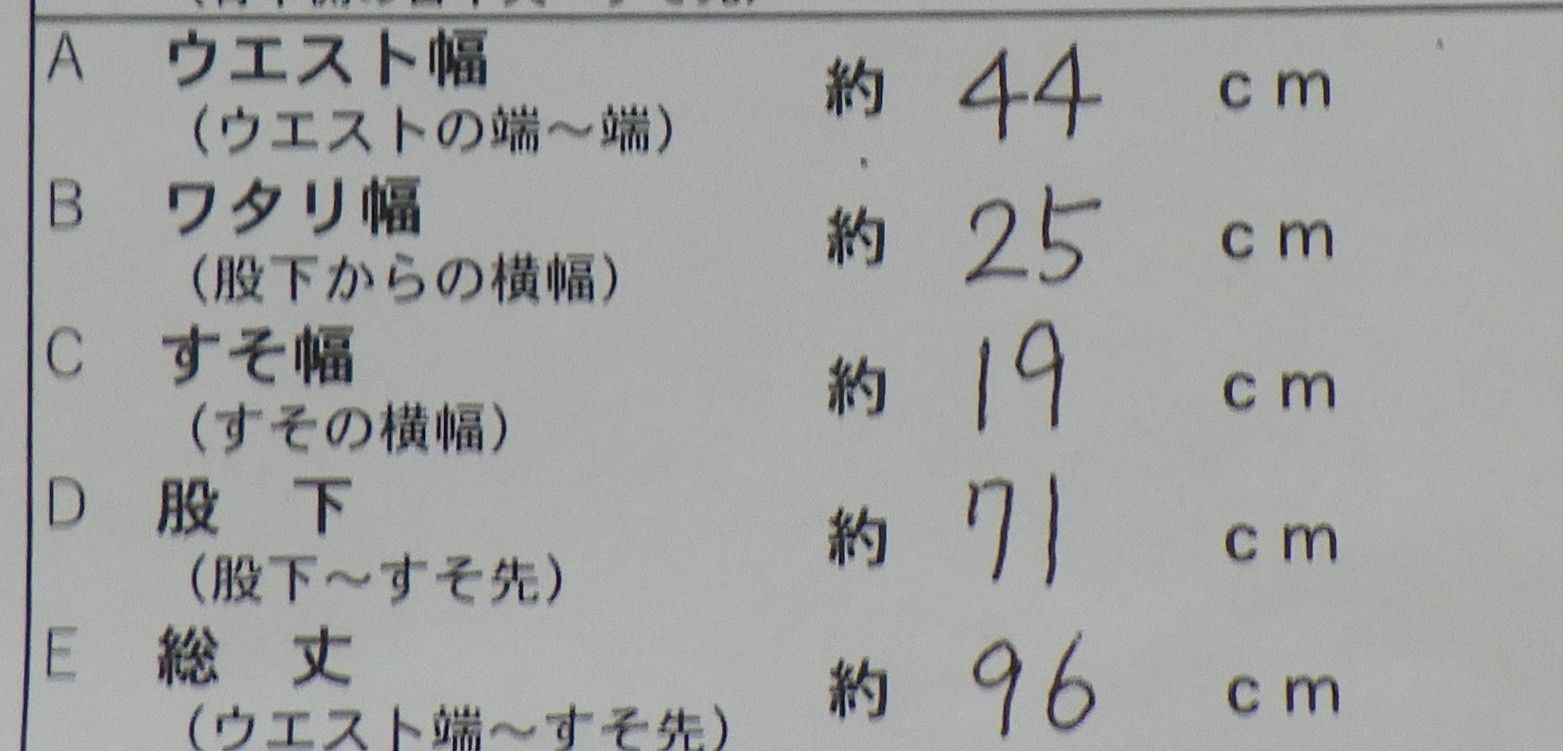 A ウエスト幅 約 44 cm
(ウエストの端～端)
B ワタリ幅 約 25 cm
(股下からの横幅)
C すそ幅 約 19 cm
(すその横幅)
D 股 下 約 71 cm
(股下～すそ先)
E 総 丈 約 96 cm
(ウエスト端～すそ先)